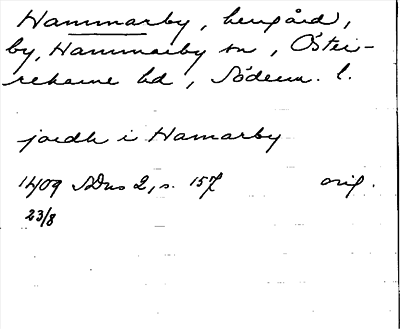 Hammarby, herrgård,
by, Hammarby sn, Öster-
rekarne hd, Söderm. l.
jordh i Hamarby
1409 SDns 2, s. 157 orig.
23/8